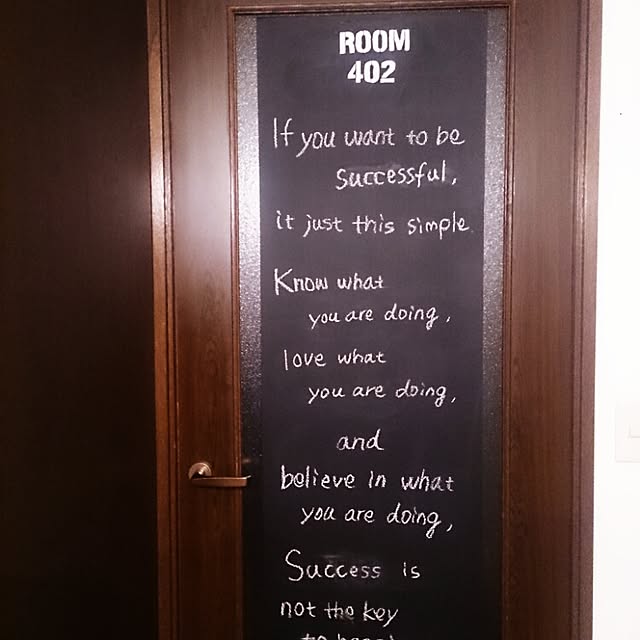 ROOM
402
If you want to be
successful,
it just this simple
Know what
you are doing,
love what
you are doing,
and
believe in what
you are doing,
Success is
not the key
to